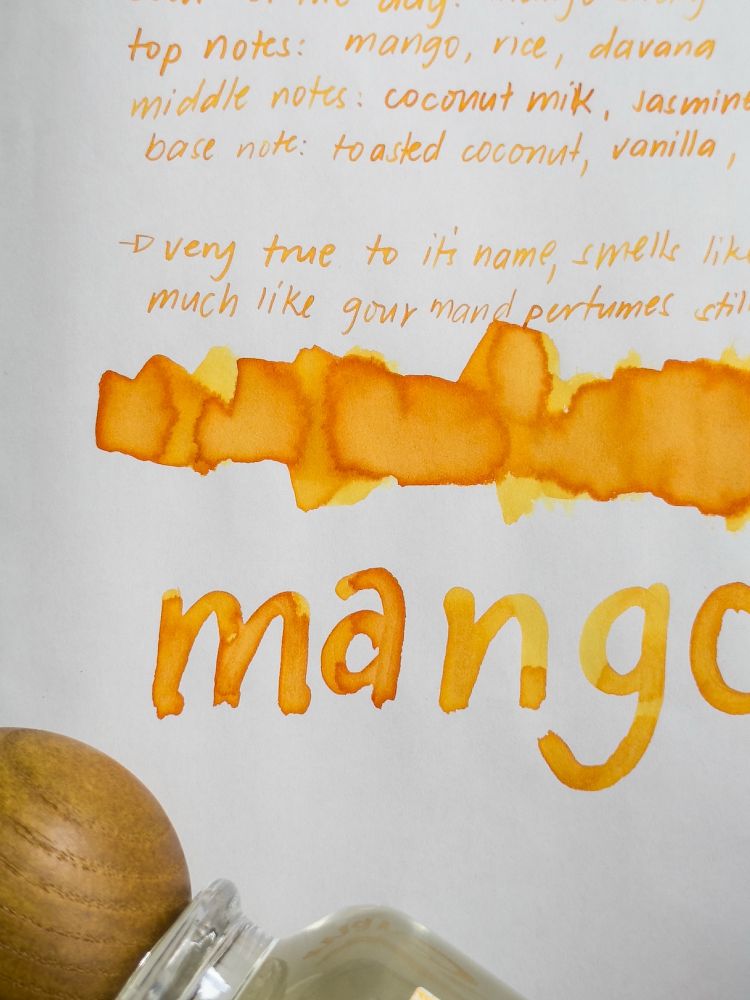 of the day: mango
top notes: mango, rice, davana
middle notes: coconut milk, jasmine
base note: toasted coconut, vanilla,
→ very true to it's name, smells like
much like gourmand perfumes still
mango